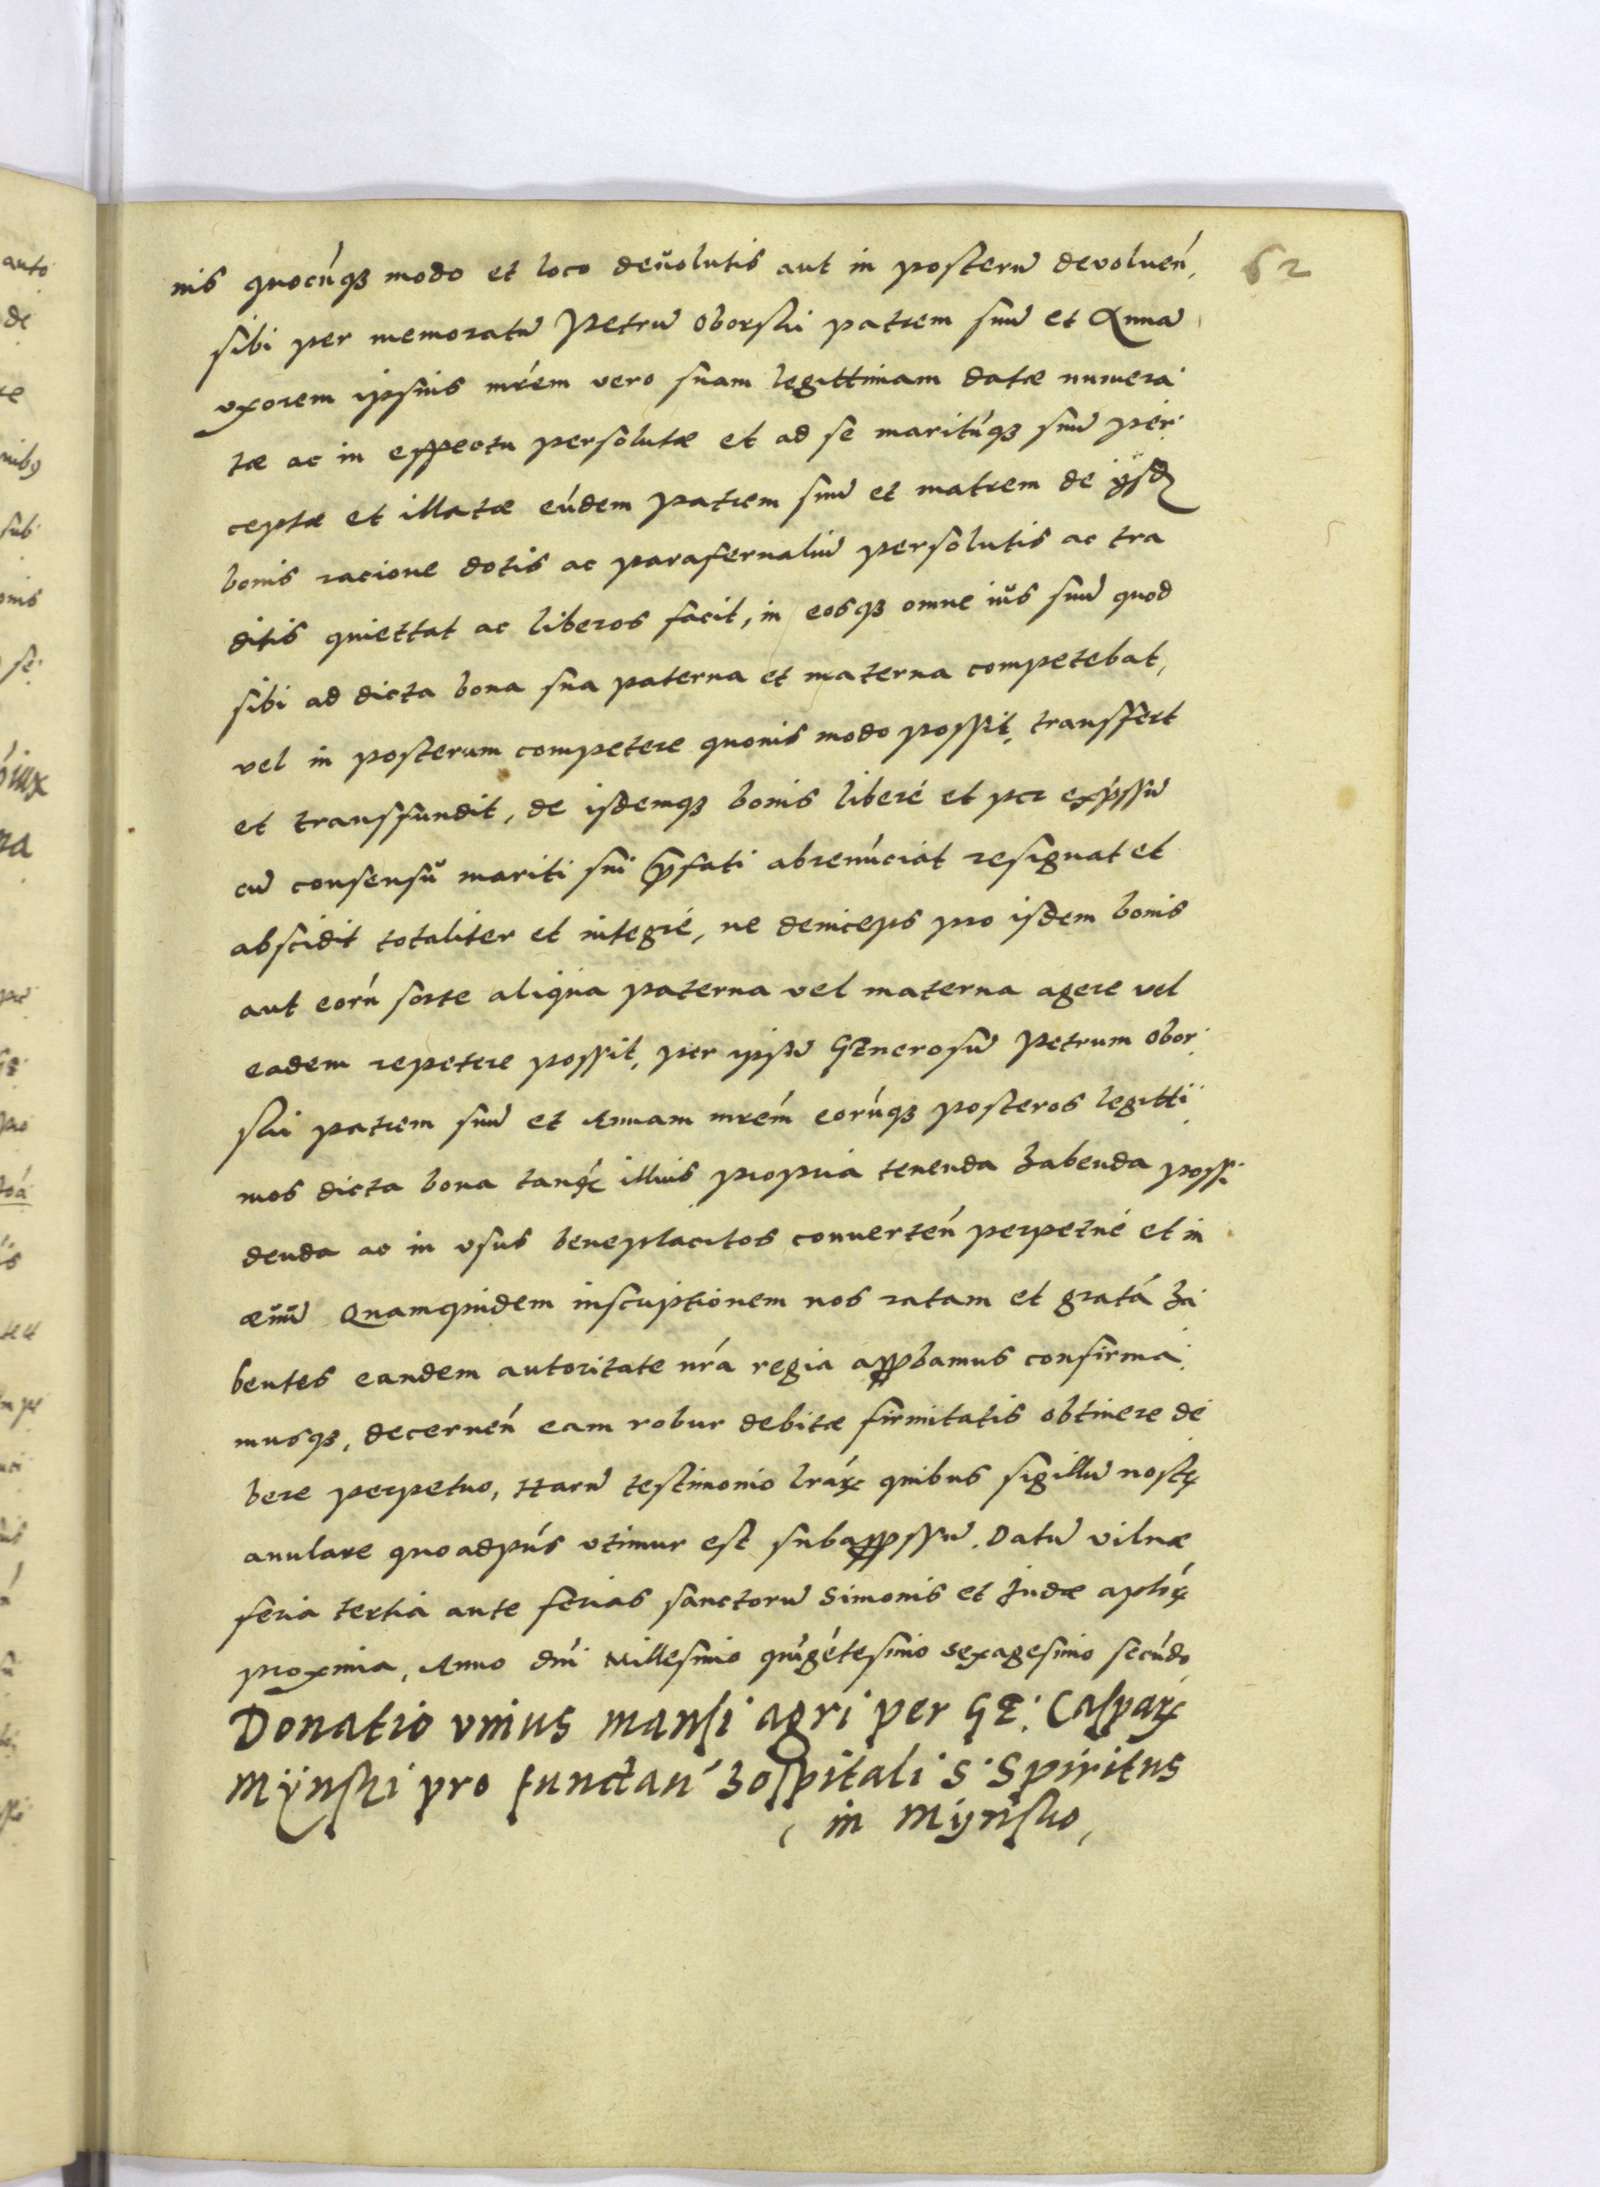 nis quocúqꝫ modo et loco deuolutis aut in posterū devoluen̄,
62
sibi per memoratū Petrū Oborski patrem suū et Annā
vxorem ipsius mr̄em vero suam legittimam datæ numera
tæ ac in effectu persolutæ et ad se maritúqꝫ suū per
ceptæ et illatæ eúdem patrem suū et matrem de ijsdē
bonis racione dotis ac parafernaliū persolutis ac tra
ditis quiettat ac liberos facit, in eosqꝫ omne ius suū quod
sibi ad dicta bona sua paterna et materna competebat,
vel in posterum competere quouis modo possit, transfert
et transfundit, de isdemqꝫ bonis liberé et per exp̄ssū
cū consensu mariti sui p̄fati abrenúciat resignat et
abscidit totaliter et integré, ne deinceps pro isdem bonis
aut eorú sorte aliqua paterna vel materna agere vel
eadem repetere possit, per ipsū Generosū Petrum Obor
ski patrem suū et Annam mr̄em eorúqꝫ posteros legitti
mos dicta bona tanqꝫ illius propria tenenda habenda possi
denda ac in vsus beneplacitos conuerten̄ perpetué et in
æuū Quamquidem inscriptionem nos ratam et gratá ha
bentes eandem autoritate nr̄a regia app̱bamus confirma
musqꝫ, decernen̄ eam robur debitæ firmitatis obtinere de
bere perpetuo, Harū testimonio lr̄aꝝ quibus sigillū nostꝝ
anulare quo adp̄ns vtimur est subapp̄ssū. Datū vilnæ
feria tertia ante ferias sanctorū Simonis et Judæ ap̄loꝝ
proxima, Anno dn̄i Millesimo quīgétesimo sexagesimo secúdo
Donatio vnius mansi agri per GE: Caspaꝝ
Mÿnski pro fundan̄ hospitali S: Spiritus
in Mÿnsko,